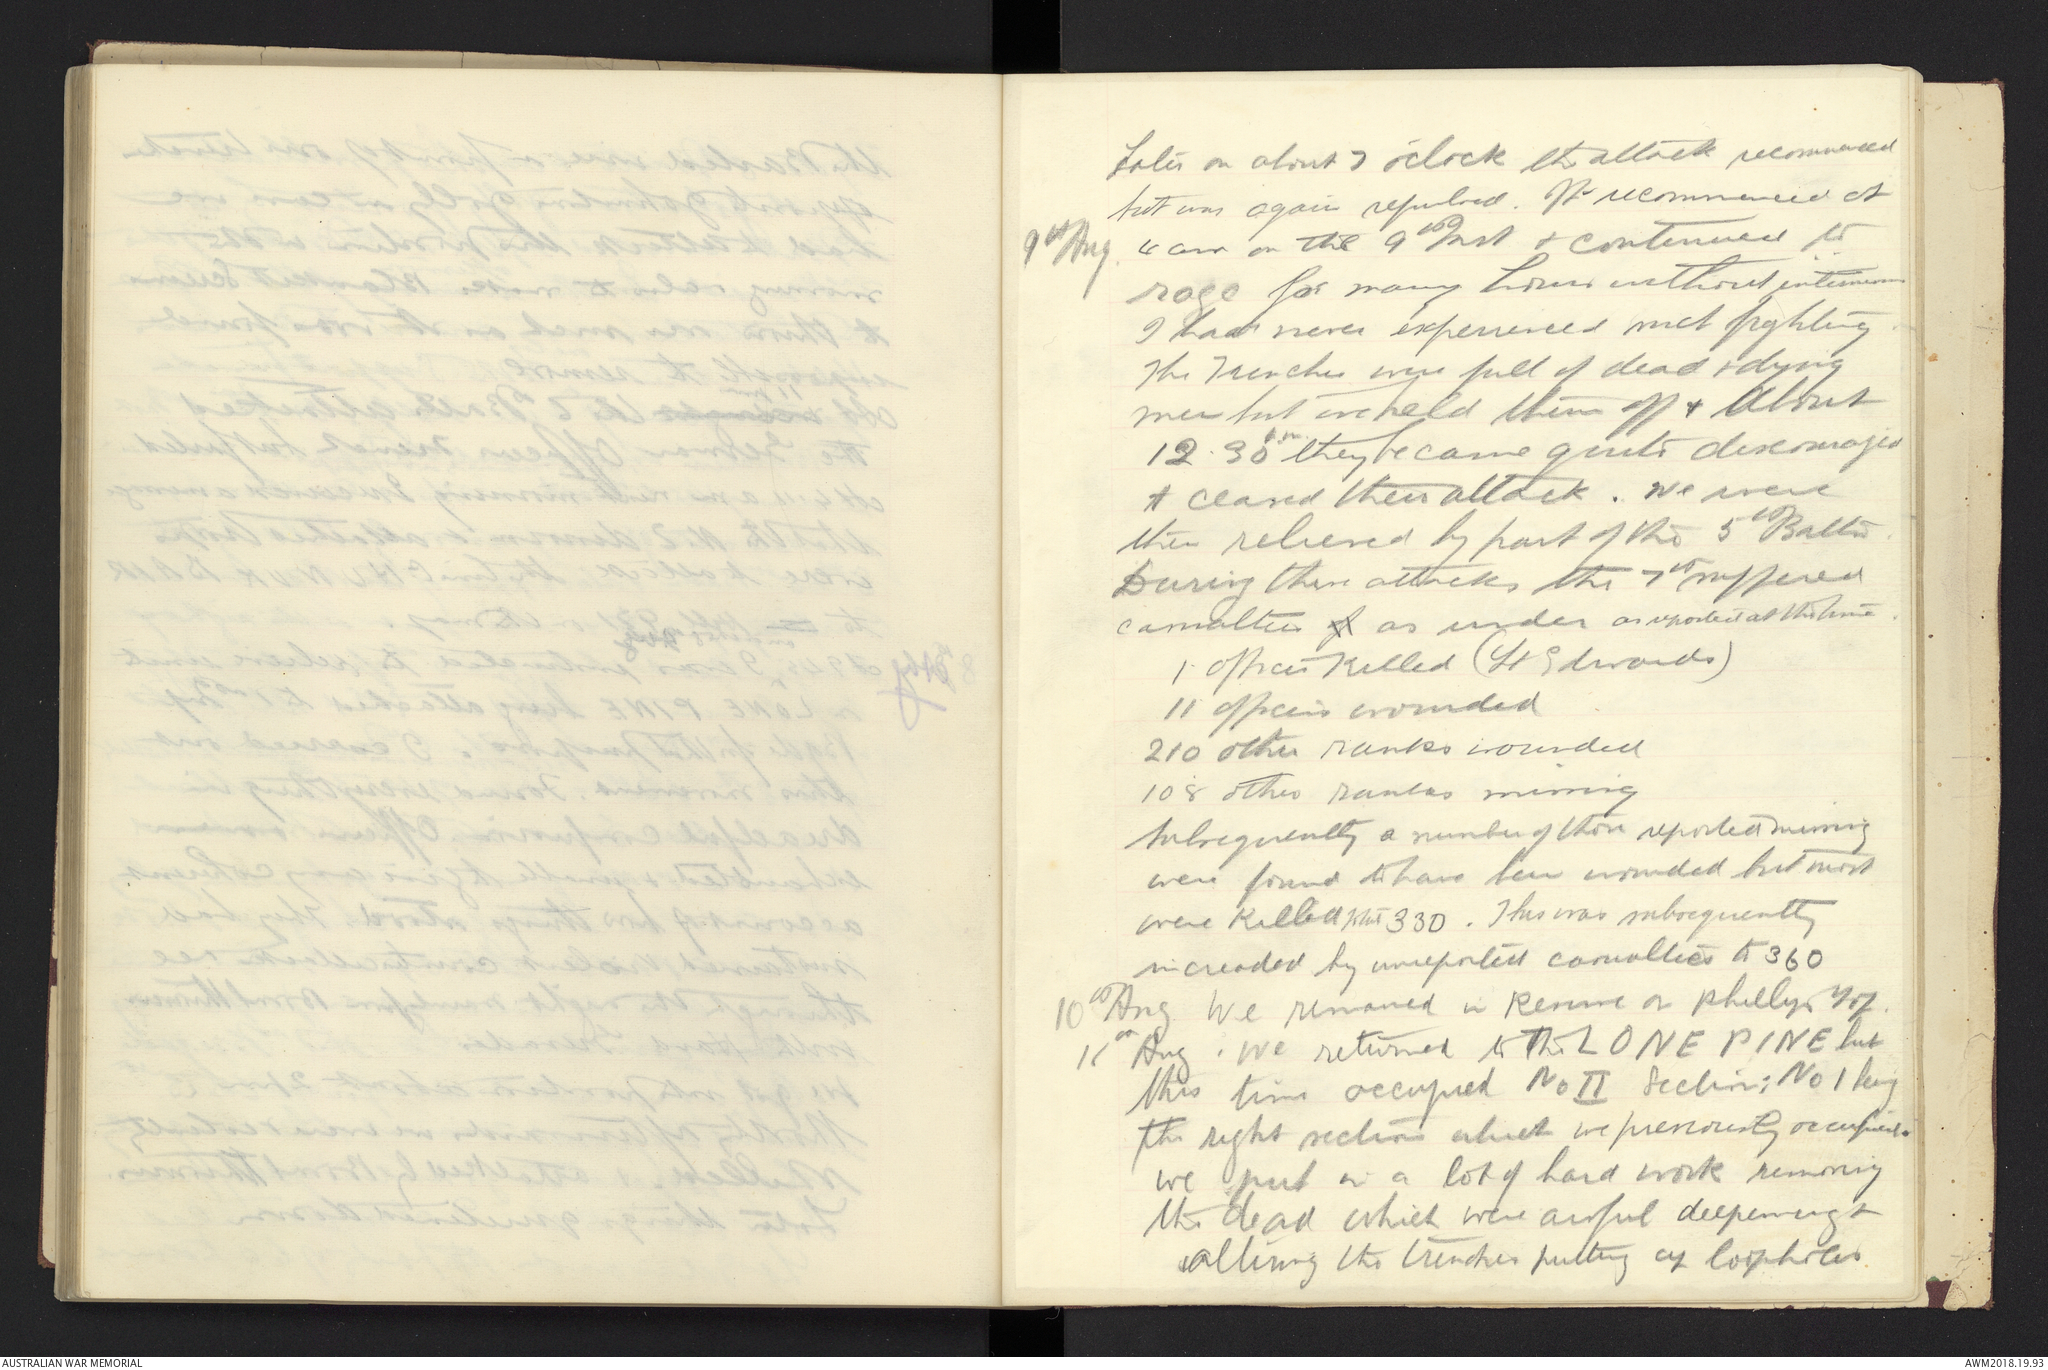 Later on about 7 o'clock the attack recommenced
but was again repulsed. It recommenced at
9th Aug. 4 am on the 9th Inst & continued to
rage for many hours without intermission
I had never experienced such fighting.
The Trenches were full of dead & dying
men but we held them off & About
12.30 pm they became quite discouraged
& ceased their attack. We were
then relieved by part of the 5th Battn.
During these attacks the 7th suffered
casualties as under as reported at the time.
1 officer killed (Lt Edwards)
11 officers wounded
210 other ranks wounded
108 other ranks missing
Subsequently a number of those reported missing
were found to have been wounded but most
were killed total 330. This was subsequently
increased by unreported casualties to 360
10th Aug We remained in Reserve on Phillips Top.
11th Aug. We returned to the LONE PINE but
this time occupied No II Section; No 1 being
the right section which we previously occupied.
we put in a lot of hard work removing
the dead which were awful deepening &
altering the trenches putting up loopholes
AUSTRALIAN WAR MEMORIAL
AWM2018.19.93